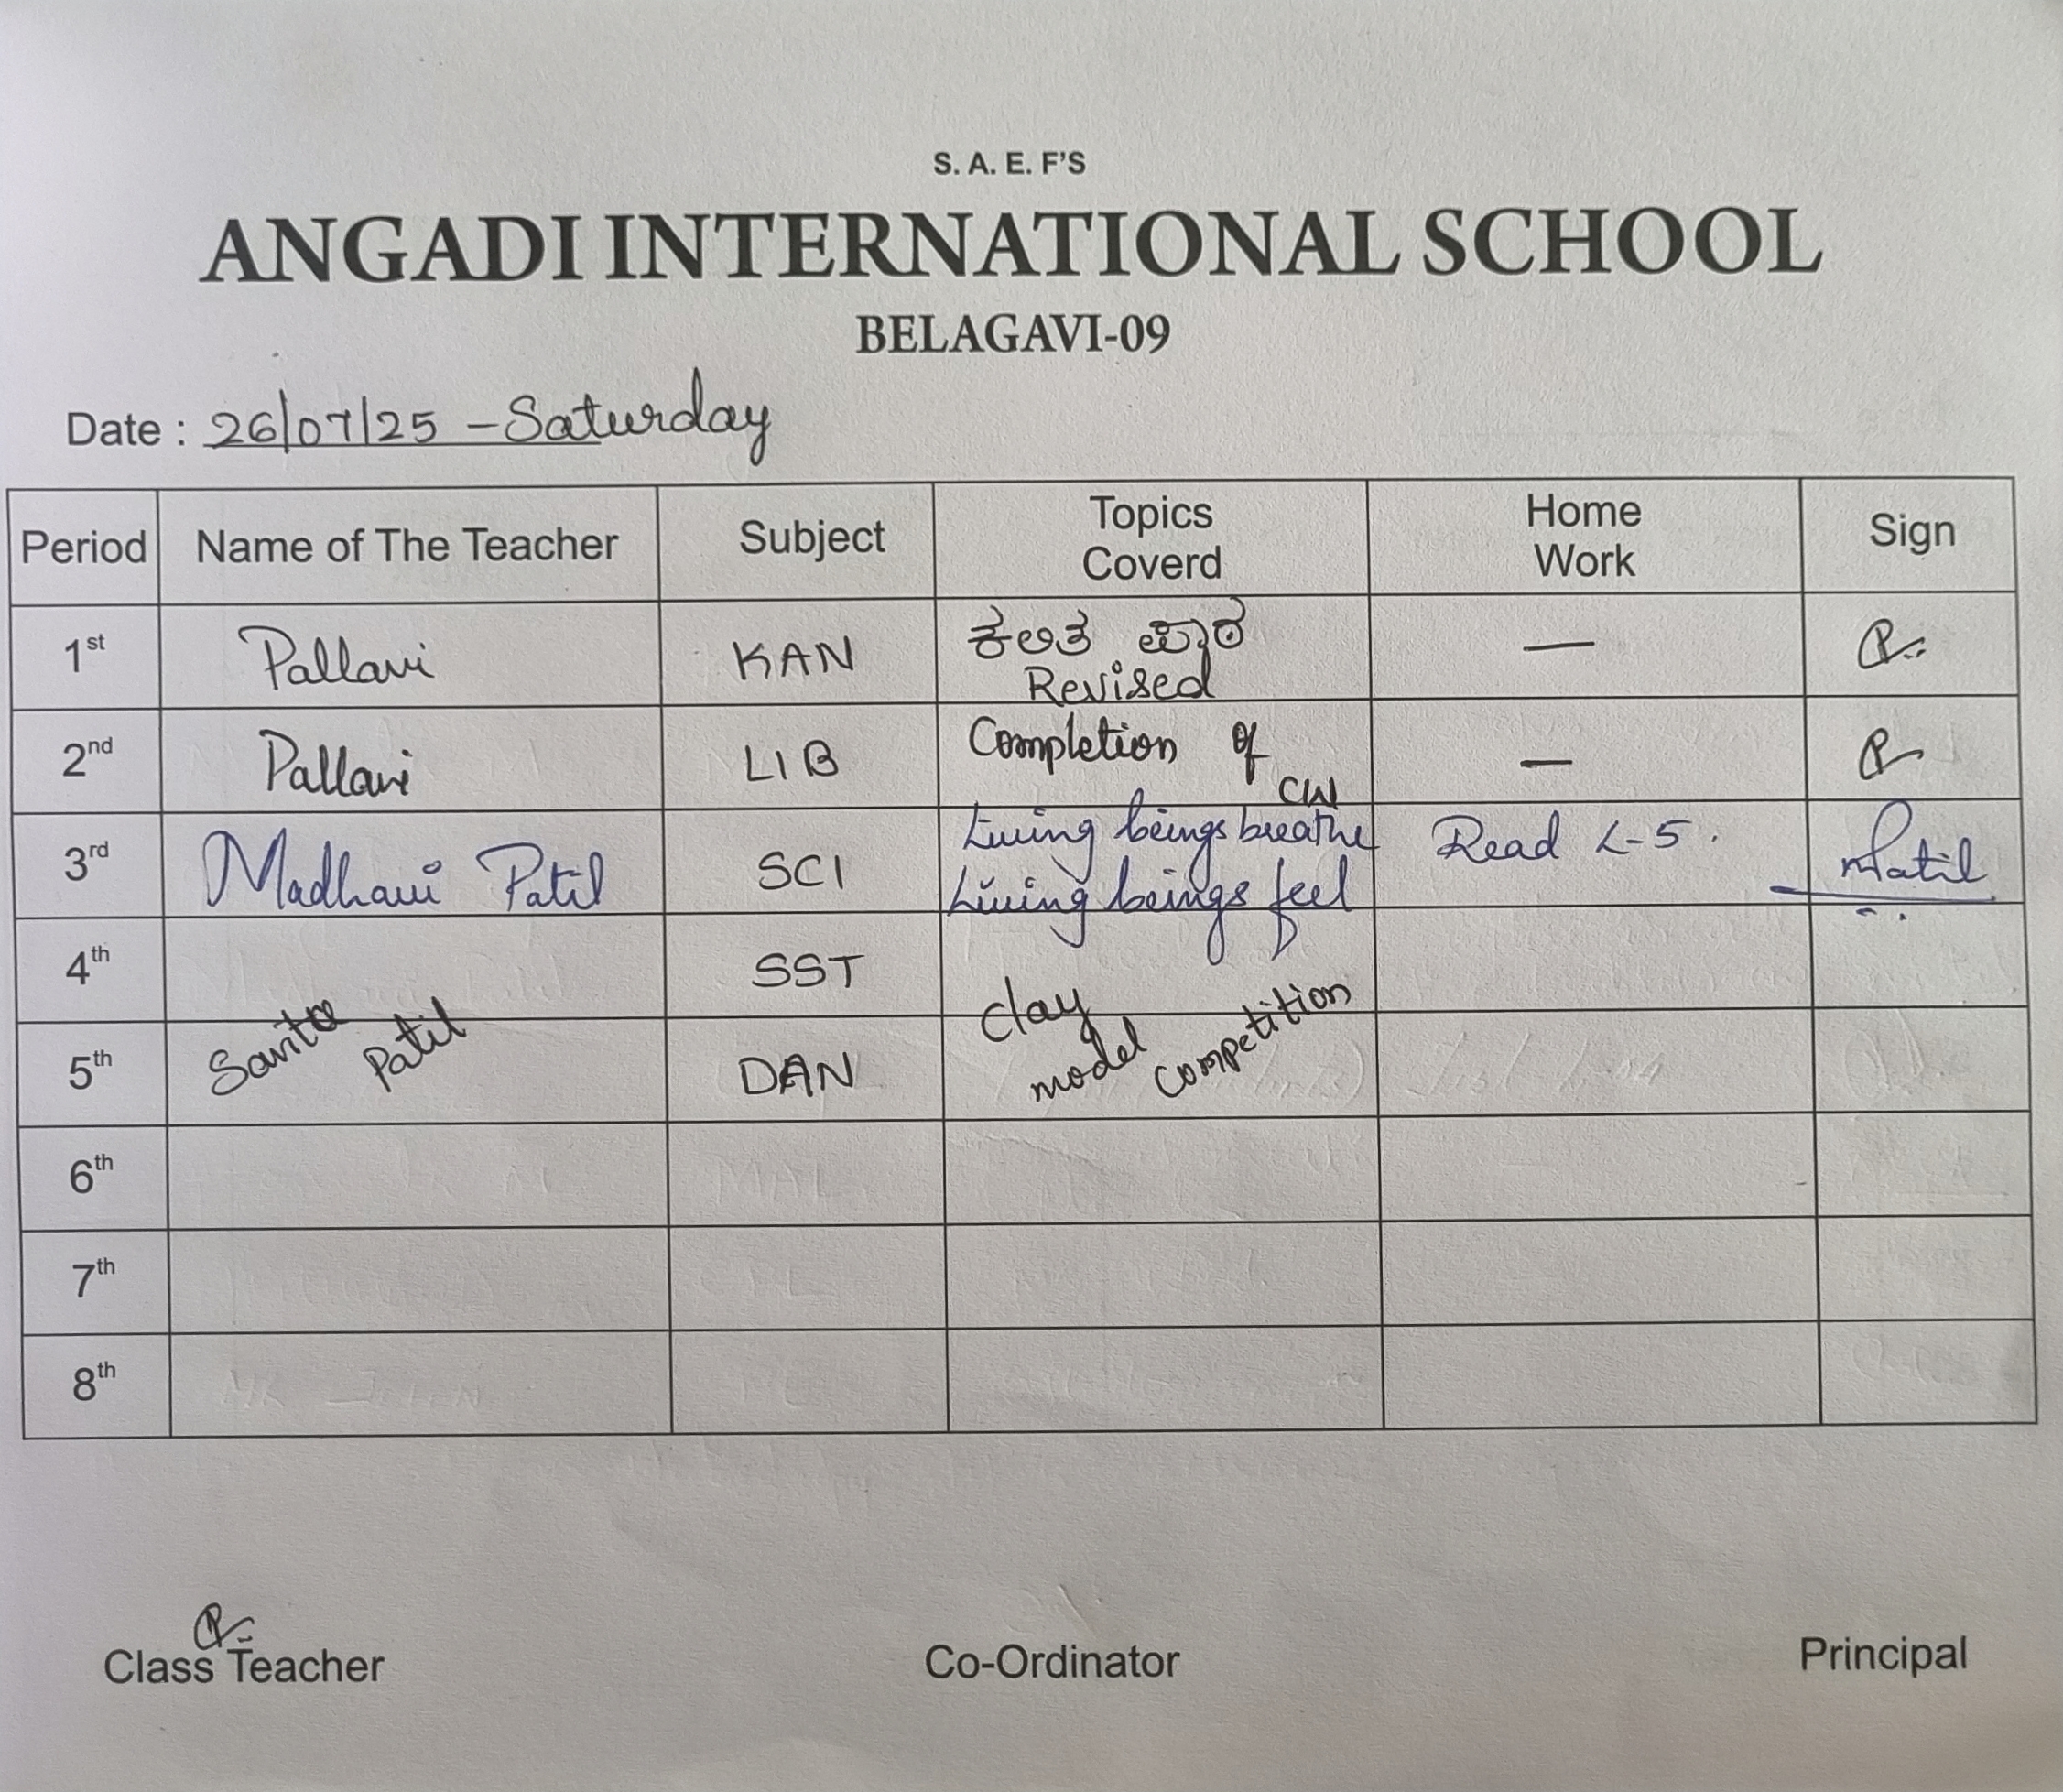 S. A. E. F'S
ANGADI INTERNATIONAL SCHOOL
BELAGAVI-09
Date : 26/07/25 - Saturday
Period Name of The Teacher Subject Topics Coverd Home Work Sign
1st Pallavi KAN ಕಲಿತ ಪಾಠ —
Revised
2nd Pallavi LIB Completion of —
CW
3rd Madhavi Patil SCI Living beings breathe Read L-5.
Living beings feel
4th SST
5th Savita Patil DAN clay model competition
6th
7th
8th
Class Teacher Co-Ordinator Principal